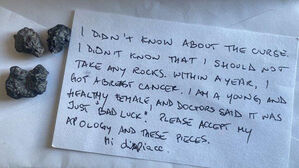 I DIDN'T KNOW ABOUT THE CURSE.
I DIDN'T KNOW THAT I SHOULD NOT
TAKE ANY ROCKS. WITHIN A YEAR, I
GOT A BREAST CANCER. I AM A YOUNG AND
HEALTHY FEMALE, AND DOCTORS SAID IT WAS
JUST "BAD LUCK". PLEASE ACCEPT MY
APOLOGY AND THESE PIECES.
Mi dispiace.